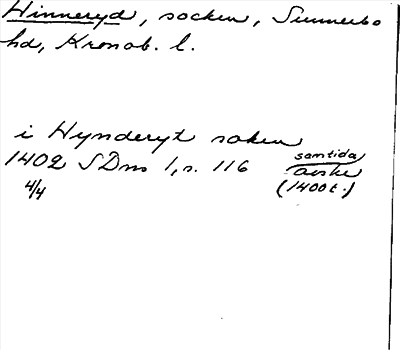 Hinneryd, socken, Sunnerbo
hd, Kronob. l.
i Hynderyt soken
1402 SDns 1, s. 116
samtida
avskr
(1400 t.)
4/4